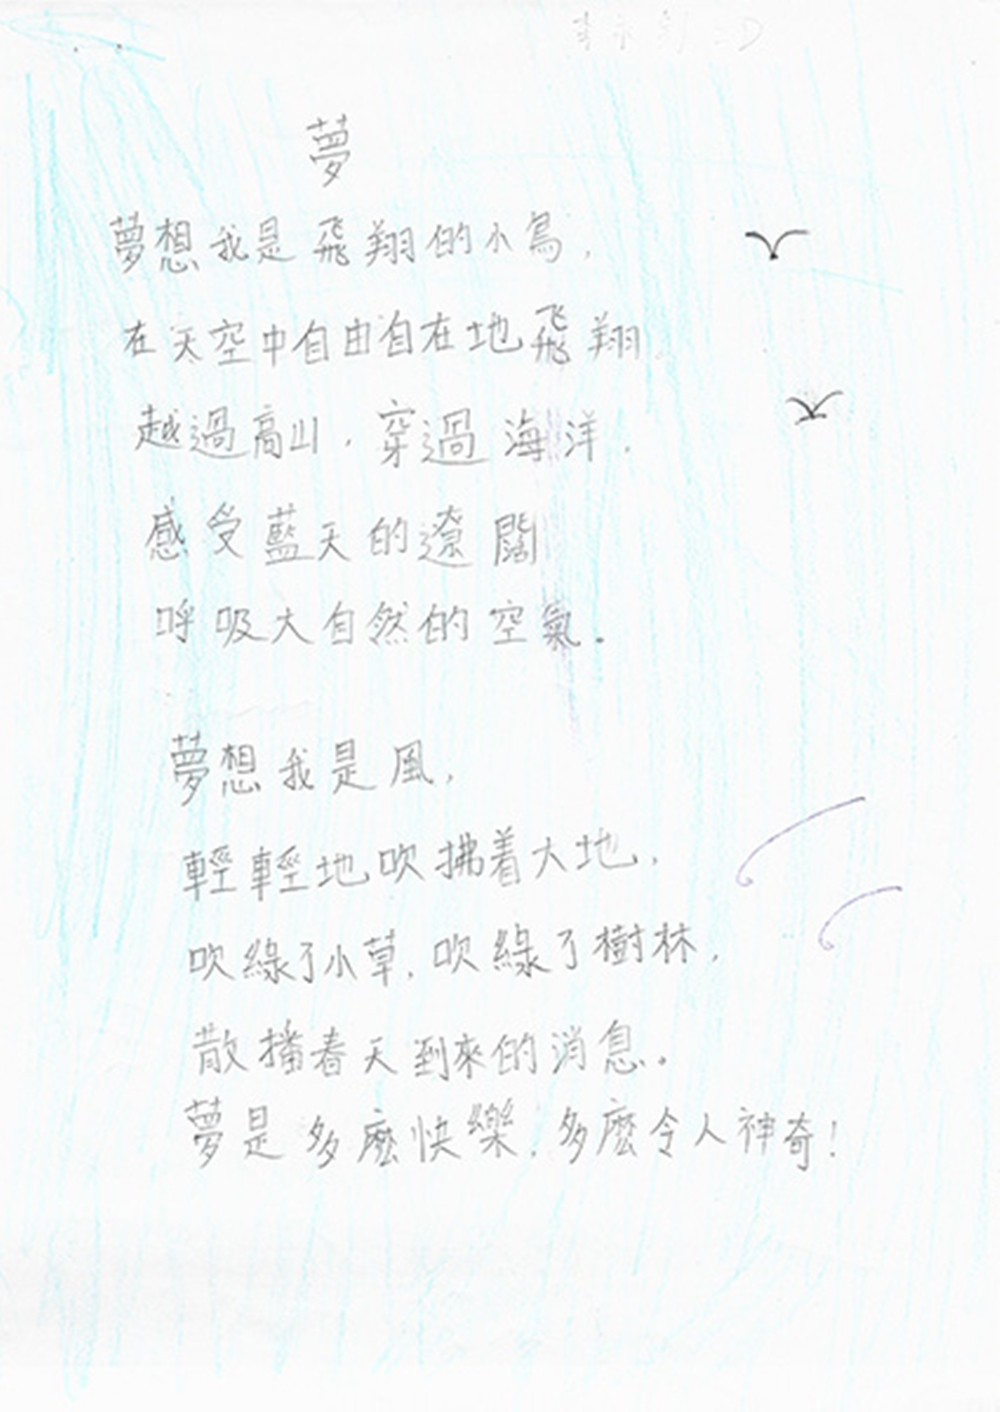 夢
夢想我是飛翔的小鳥,
在天空中自由自在地飛翔
越過高山,穿過海洋,
感受藍天的遼闊
呼吸大自然的空氣。
夢想我是風,
輕輕地吹拂着大地,
吹綠了小草,吹綠了樹林,
散播春天到來的消息。
夢是多麼快樂,多麼令人神奇!